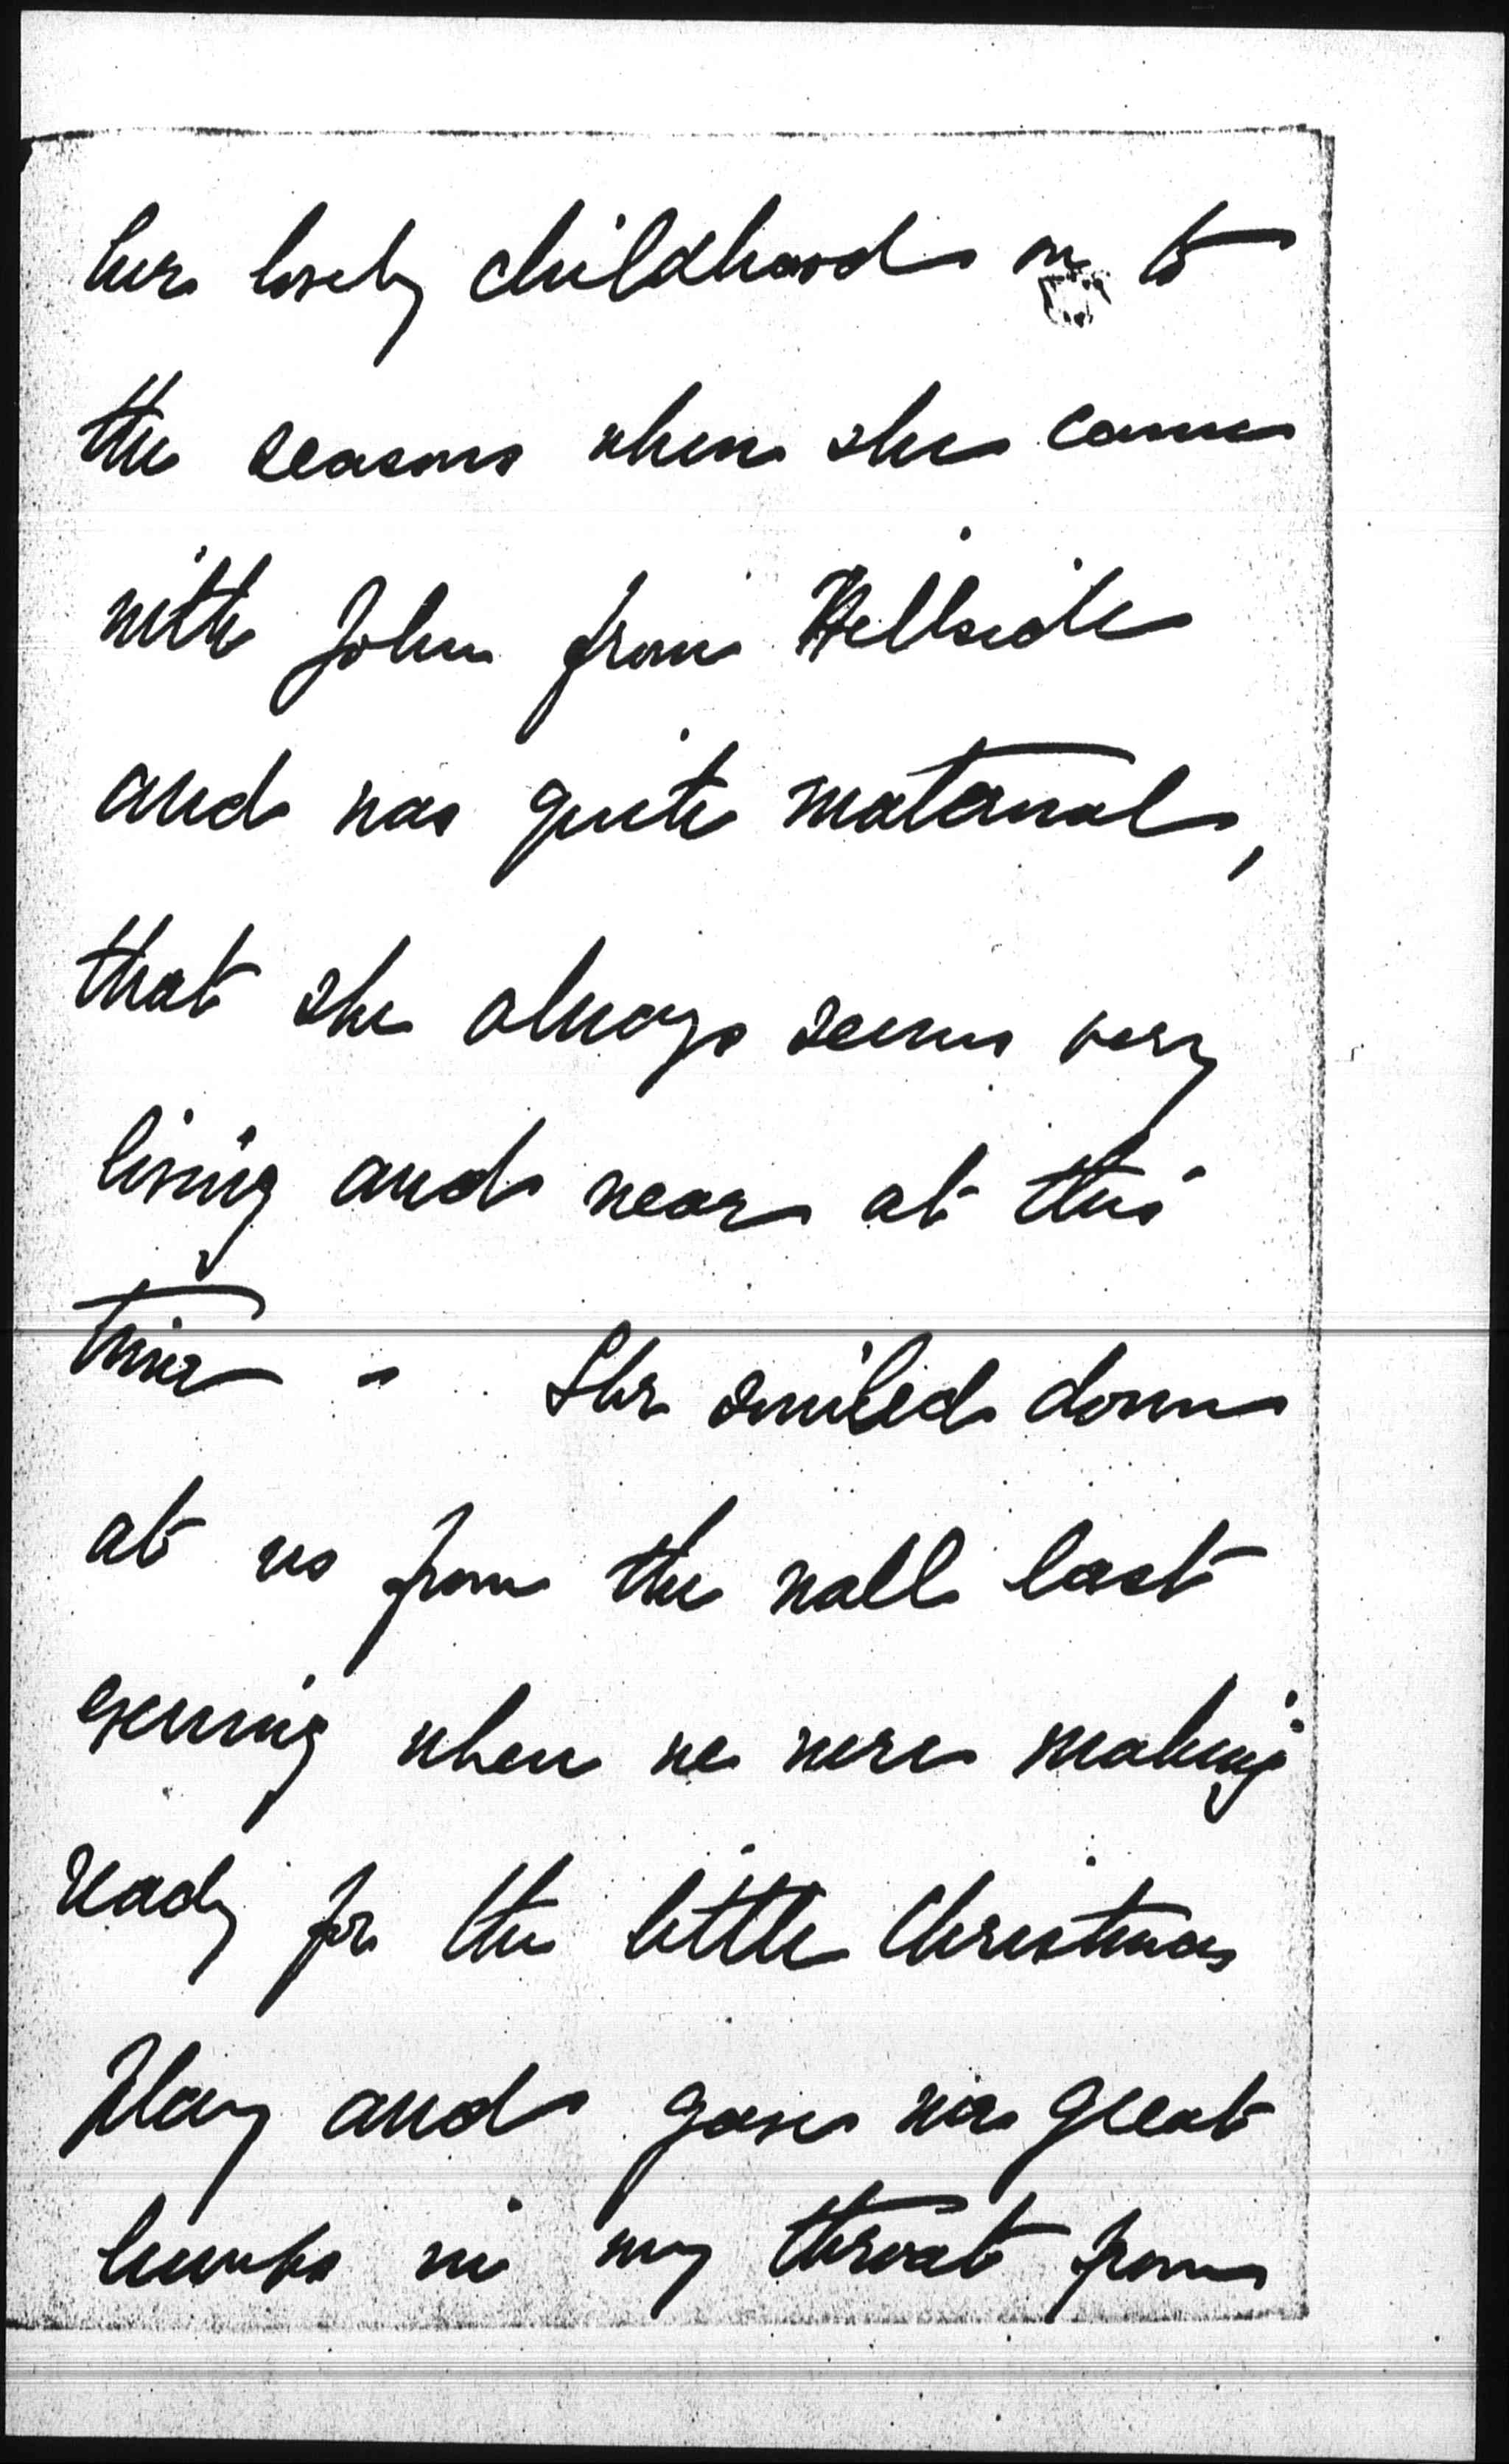 her lovely childhood on to
the seasons when she came
with John from Hillside
and was quite maternal,
that she always seems very
living and near at this
time - She smiled down
at us from the wall last
evening when we were making
ready for the little Christmas
Play and gave me great
lumps in my throat from